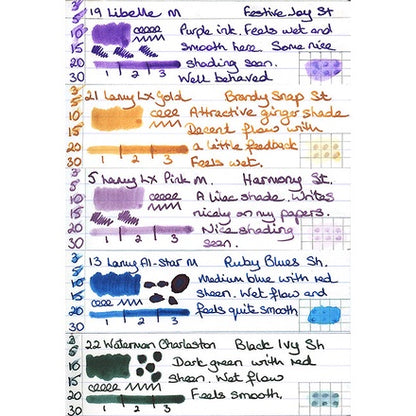 19 Libelle M Festive Joy St
5
10 Purple ink. Feels wet and
15 smooth here. Some nice
20 shading seen.
1 2 3
30 Well behaved
21 Lamy Lx Gold Brandy Snap St
5
10 Attractive ginger shade
15 Decent flow with
20 a little feedback
1 2 3
30 Feels wet.
5 Lamy Lx Pink M. Harmony St.
5
10 A lilac shade. Writes
15 nicely on my papers.
20 Nice shading
1 2 3
30 seen.
13 Lamy All-Star M Ruby Blues Sh.
5
10 Medium blue with red
15 sheen. Wet flow and
20 feels quite smooth
1 2 3
30
22 Waterman Charleston Black Ivy Sh
5
10 Dark green with red
15 sheen. Wet flow
20 Feels smooth.
1 2 3
30